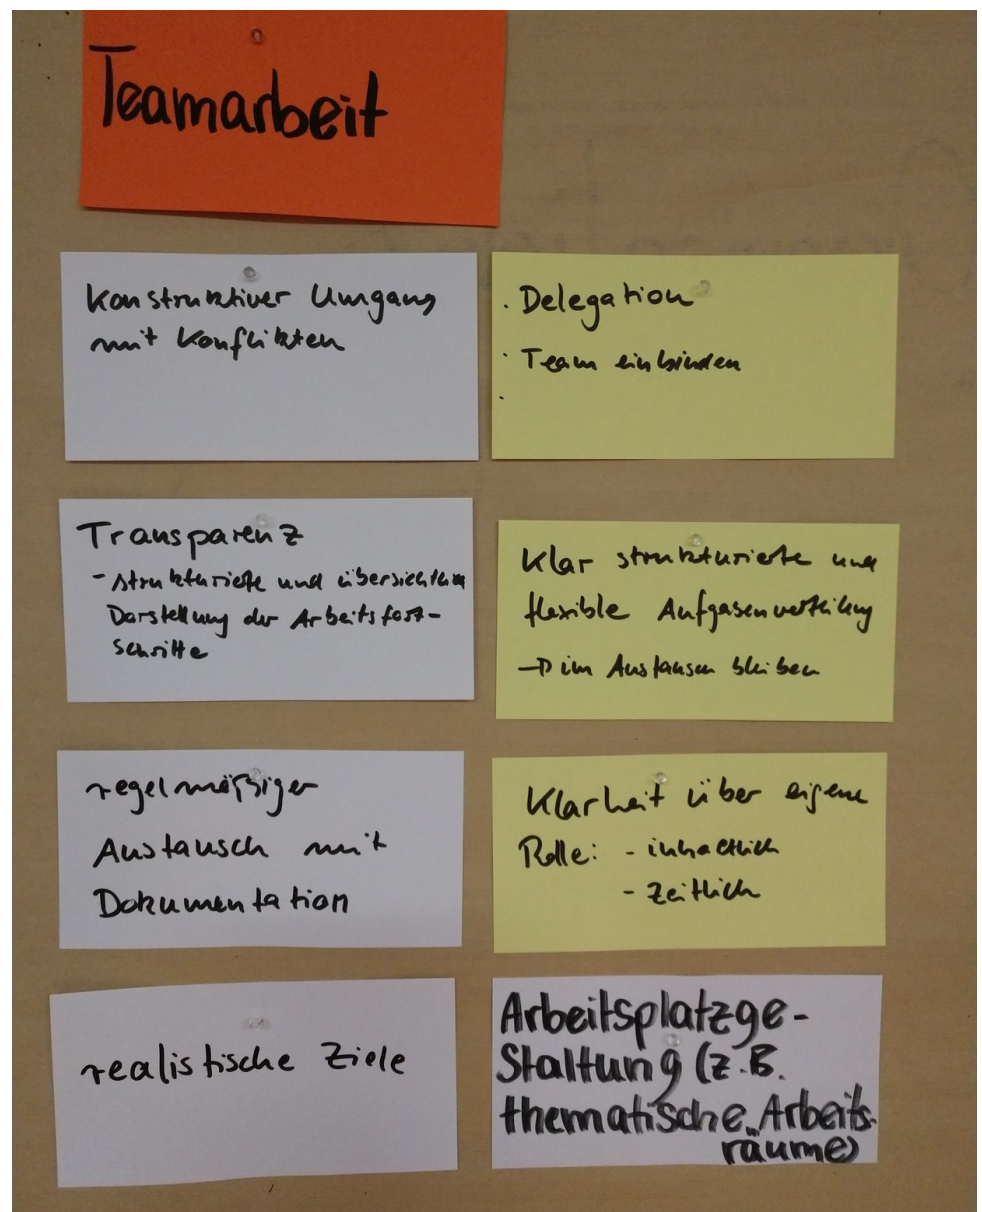 Teamarbeit
Konstruktiver Umgang
mit Konflikten
· Delegation
· Team einbinden
·
Transparenz
- strukturierte und übersichtliche
Darstellung der Arbeitsfort-
schritte
Klar strukturierte und
flexible Aufgabenverteilung
→ im Austausch bleiben
regelmäßiger
Austausch mit
Dokumentation
Klarheit über eigene
Rolle: - inhaltlich
- zeitlich
realistische Ziele
Arbeitsplatzge-
staltung (z.B.
thematische Arbeits-
räume)